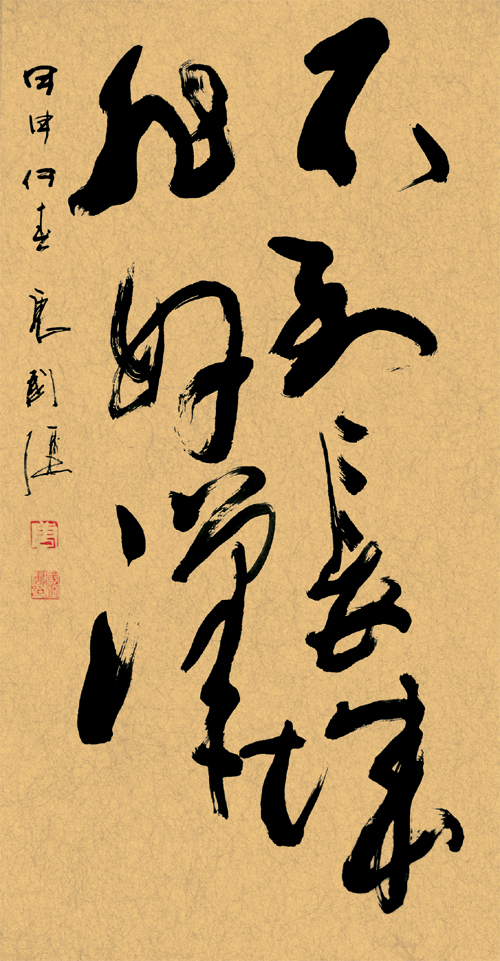 不到長城
非好漢
甲申仲春